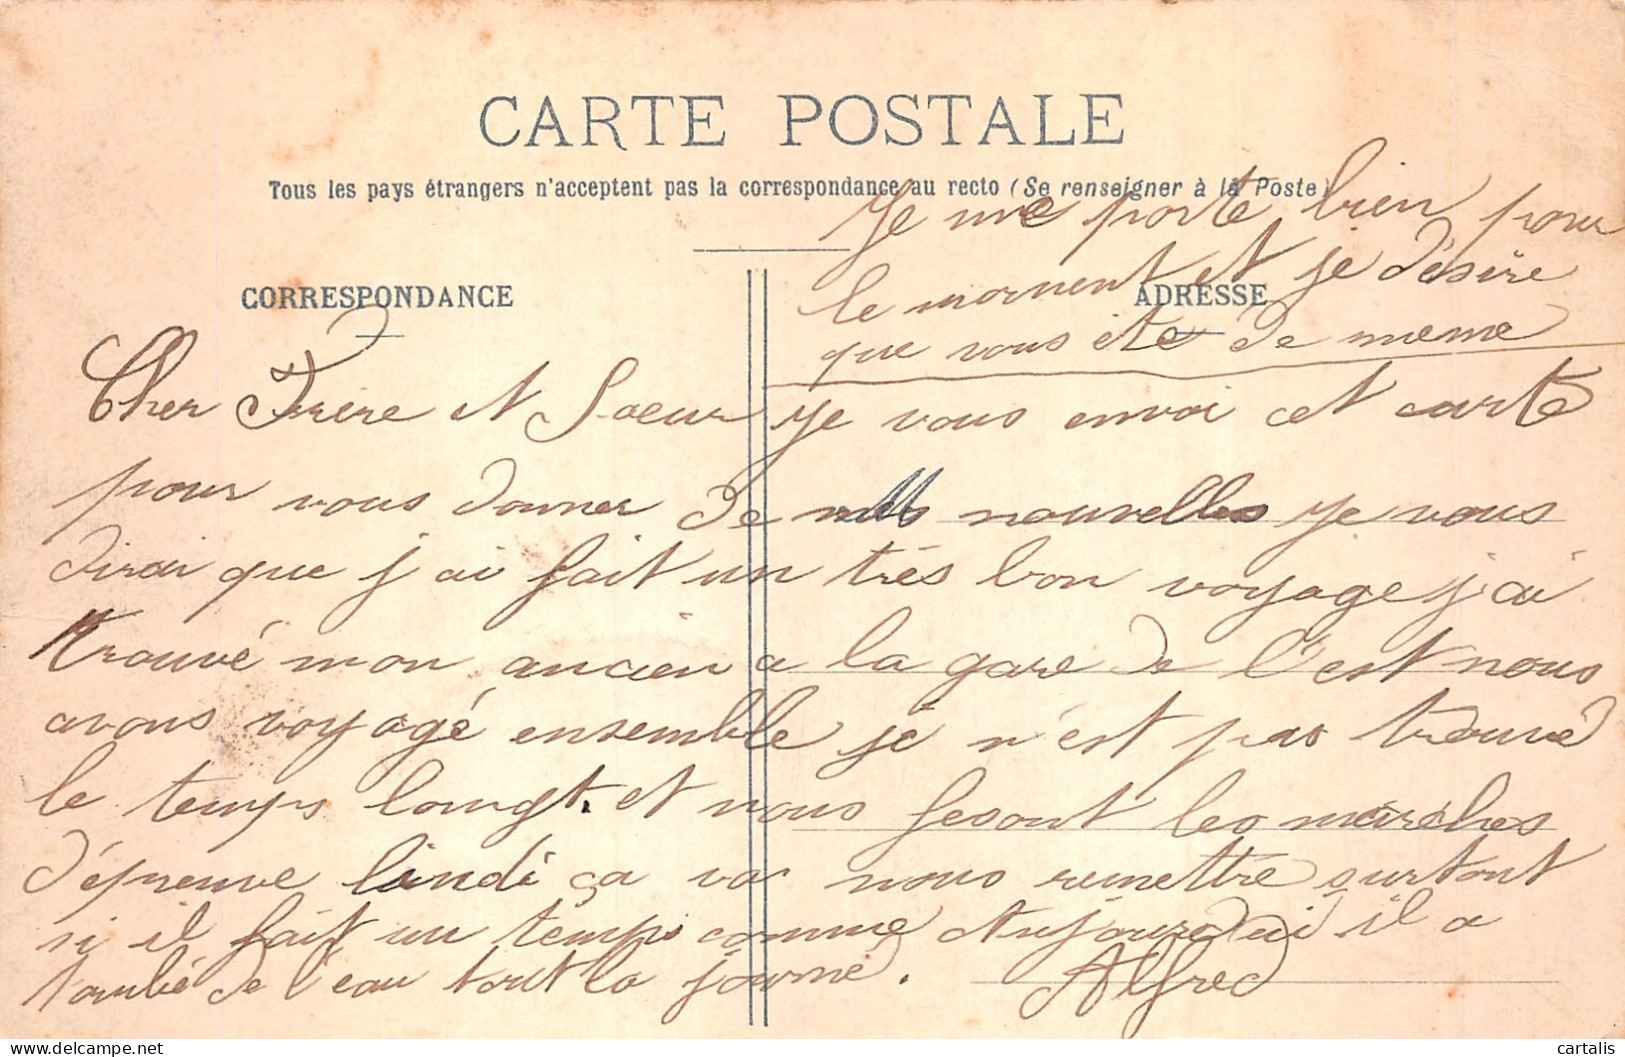 CARTE POSTALE
Tous les pays étrangers n'acceptent pas la correspondance au recto (Se renseigner à la Poste)
CORRESPONDANCE
ADRESSE
Je me porte bien pour
le moment et je désire
que vous ete de meme
Cher Frère et Soeur je vous envoi cet carte
pour vous donner de mes nouvelles je vous
dirai que j'ai fait un très bon voyage j'ai
trouvé mon ancien a la gare de l'est nous
avons voyagé ensemble je n'est pas trouvé
le temps longt. et nous fesont les marches
d'épreuve lundi ça va nous remettre surtout
si il fait un temps comme Aujourd'ui il a
tombé de l'eau tout la journé.
Alfred
delcampe.net
cartalis